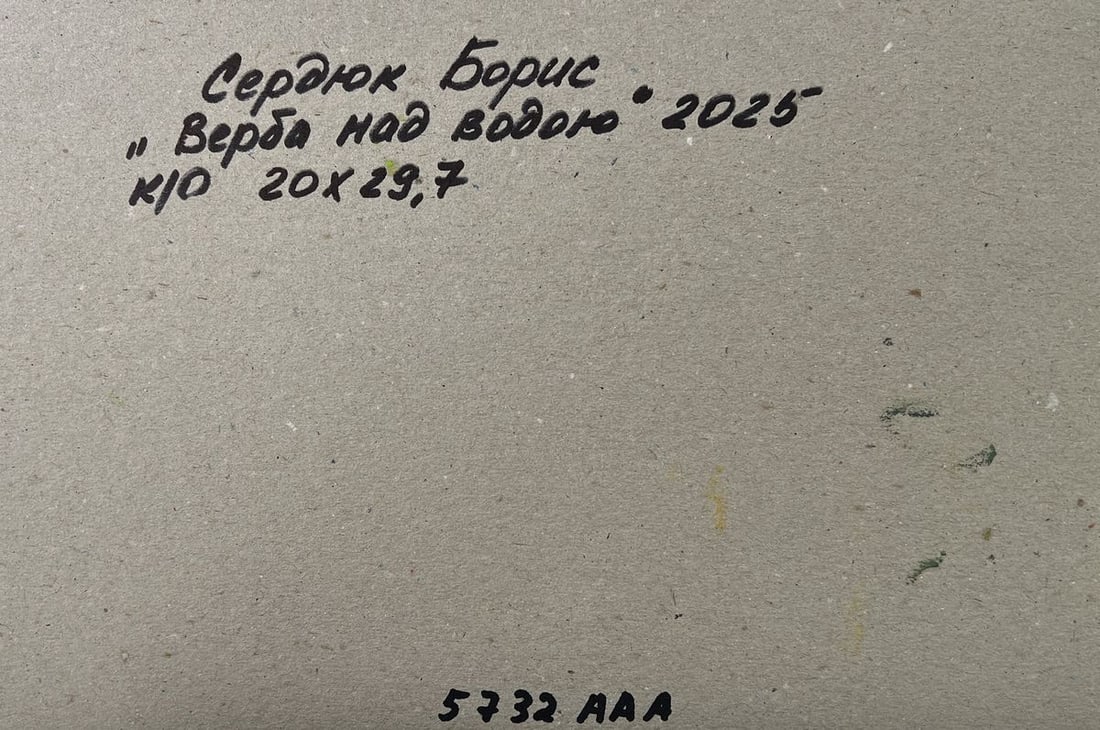 Сердюк Борис
„Верба над водою" 2025
к/о 20х29,7
5732 ААА